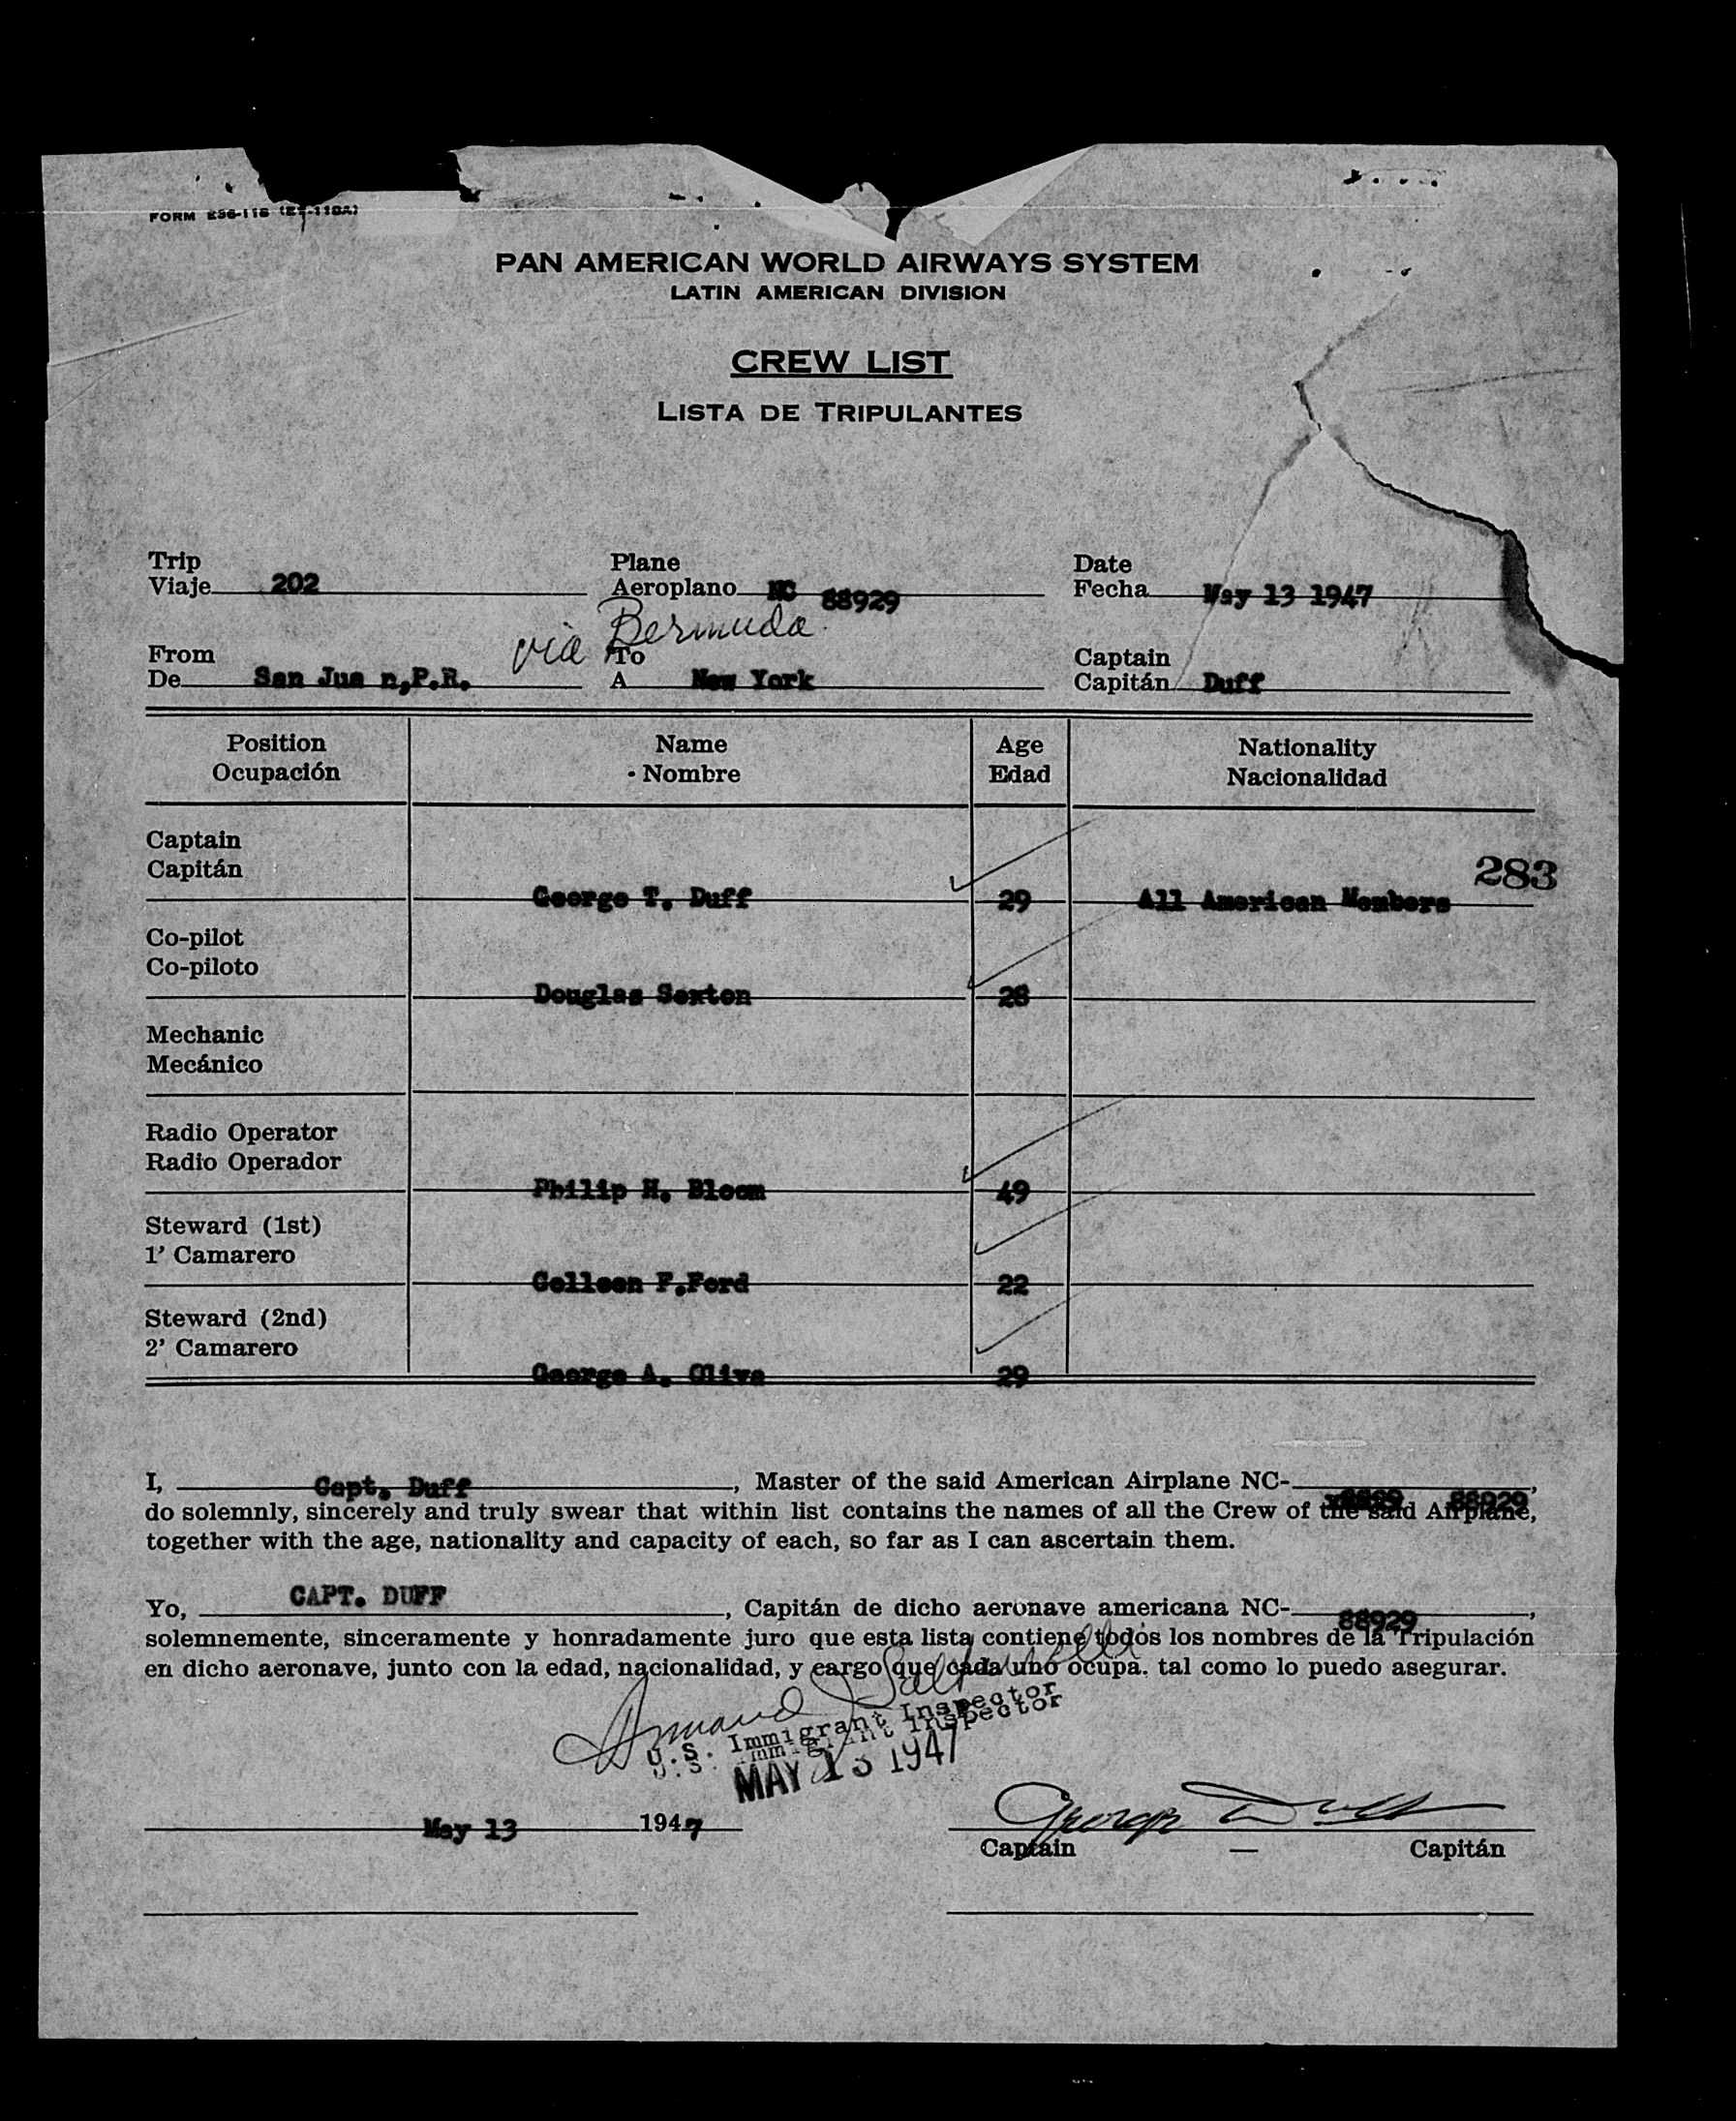 FORM E36-118 (ES-118A)
PAN AMERICAN WORLD AIRWAYS SYSTEM
LATIN AMERICAN DIVISION
CREW LIST
LISTA DE TRIPULANTES
Trip Plane Date
Viaje 202 Aeroplano NC 88929 Fecha May 13 1947
via Bermuda
From To Captain
De San Jua n,P.R. A New York Capitán Duff
Position Name Age Nationality
Ocupación Nombre Edad Nacionalidad
Captain
Capitán 283
George T. Duff 29 All American Members
Co-pilot
Co-piloto
Douglas Sexton 28
Mechanic
Mecánico
Radio Operator
Radio Operador
Philip H. Bloom 49
Steward (1st)
1' Camarero
Colleen F.Ford 22
Steward (2nd)
2' Camarero
George A. Oliva 29
I, Capt. Duff, Master of the said American Airplane NC- 88929,
do solemnly, sincerely and truly swear that within list contains the names of all the Crew of the said Airplane,
together with the age, nationality and capacity of each, so far as I can ascertain them.
Yo, CAPT. DUFF, Capitán de dicho aeronave americana NC- 88929,
solemnemente, sinceramente y honradamente juro que esta lista contiene todos los nombres de la Tripulación
en dicho aeronave, junto con la edad, nacionalidad, y cargo que cada uno ocupa. tal como lo puedo asegurar.
Armand
U.S. Immigrant Inspector
U.S. Immigrant Inspector
MAY 13 1947
May 13 1947 George T Duff
Captain — Capitán